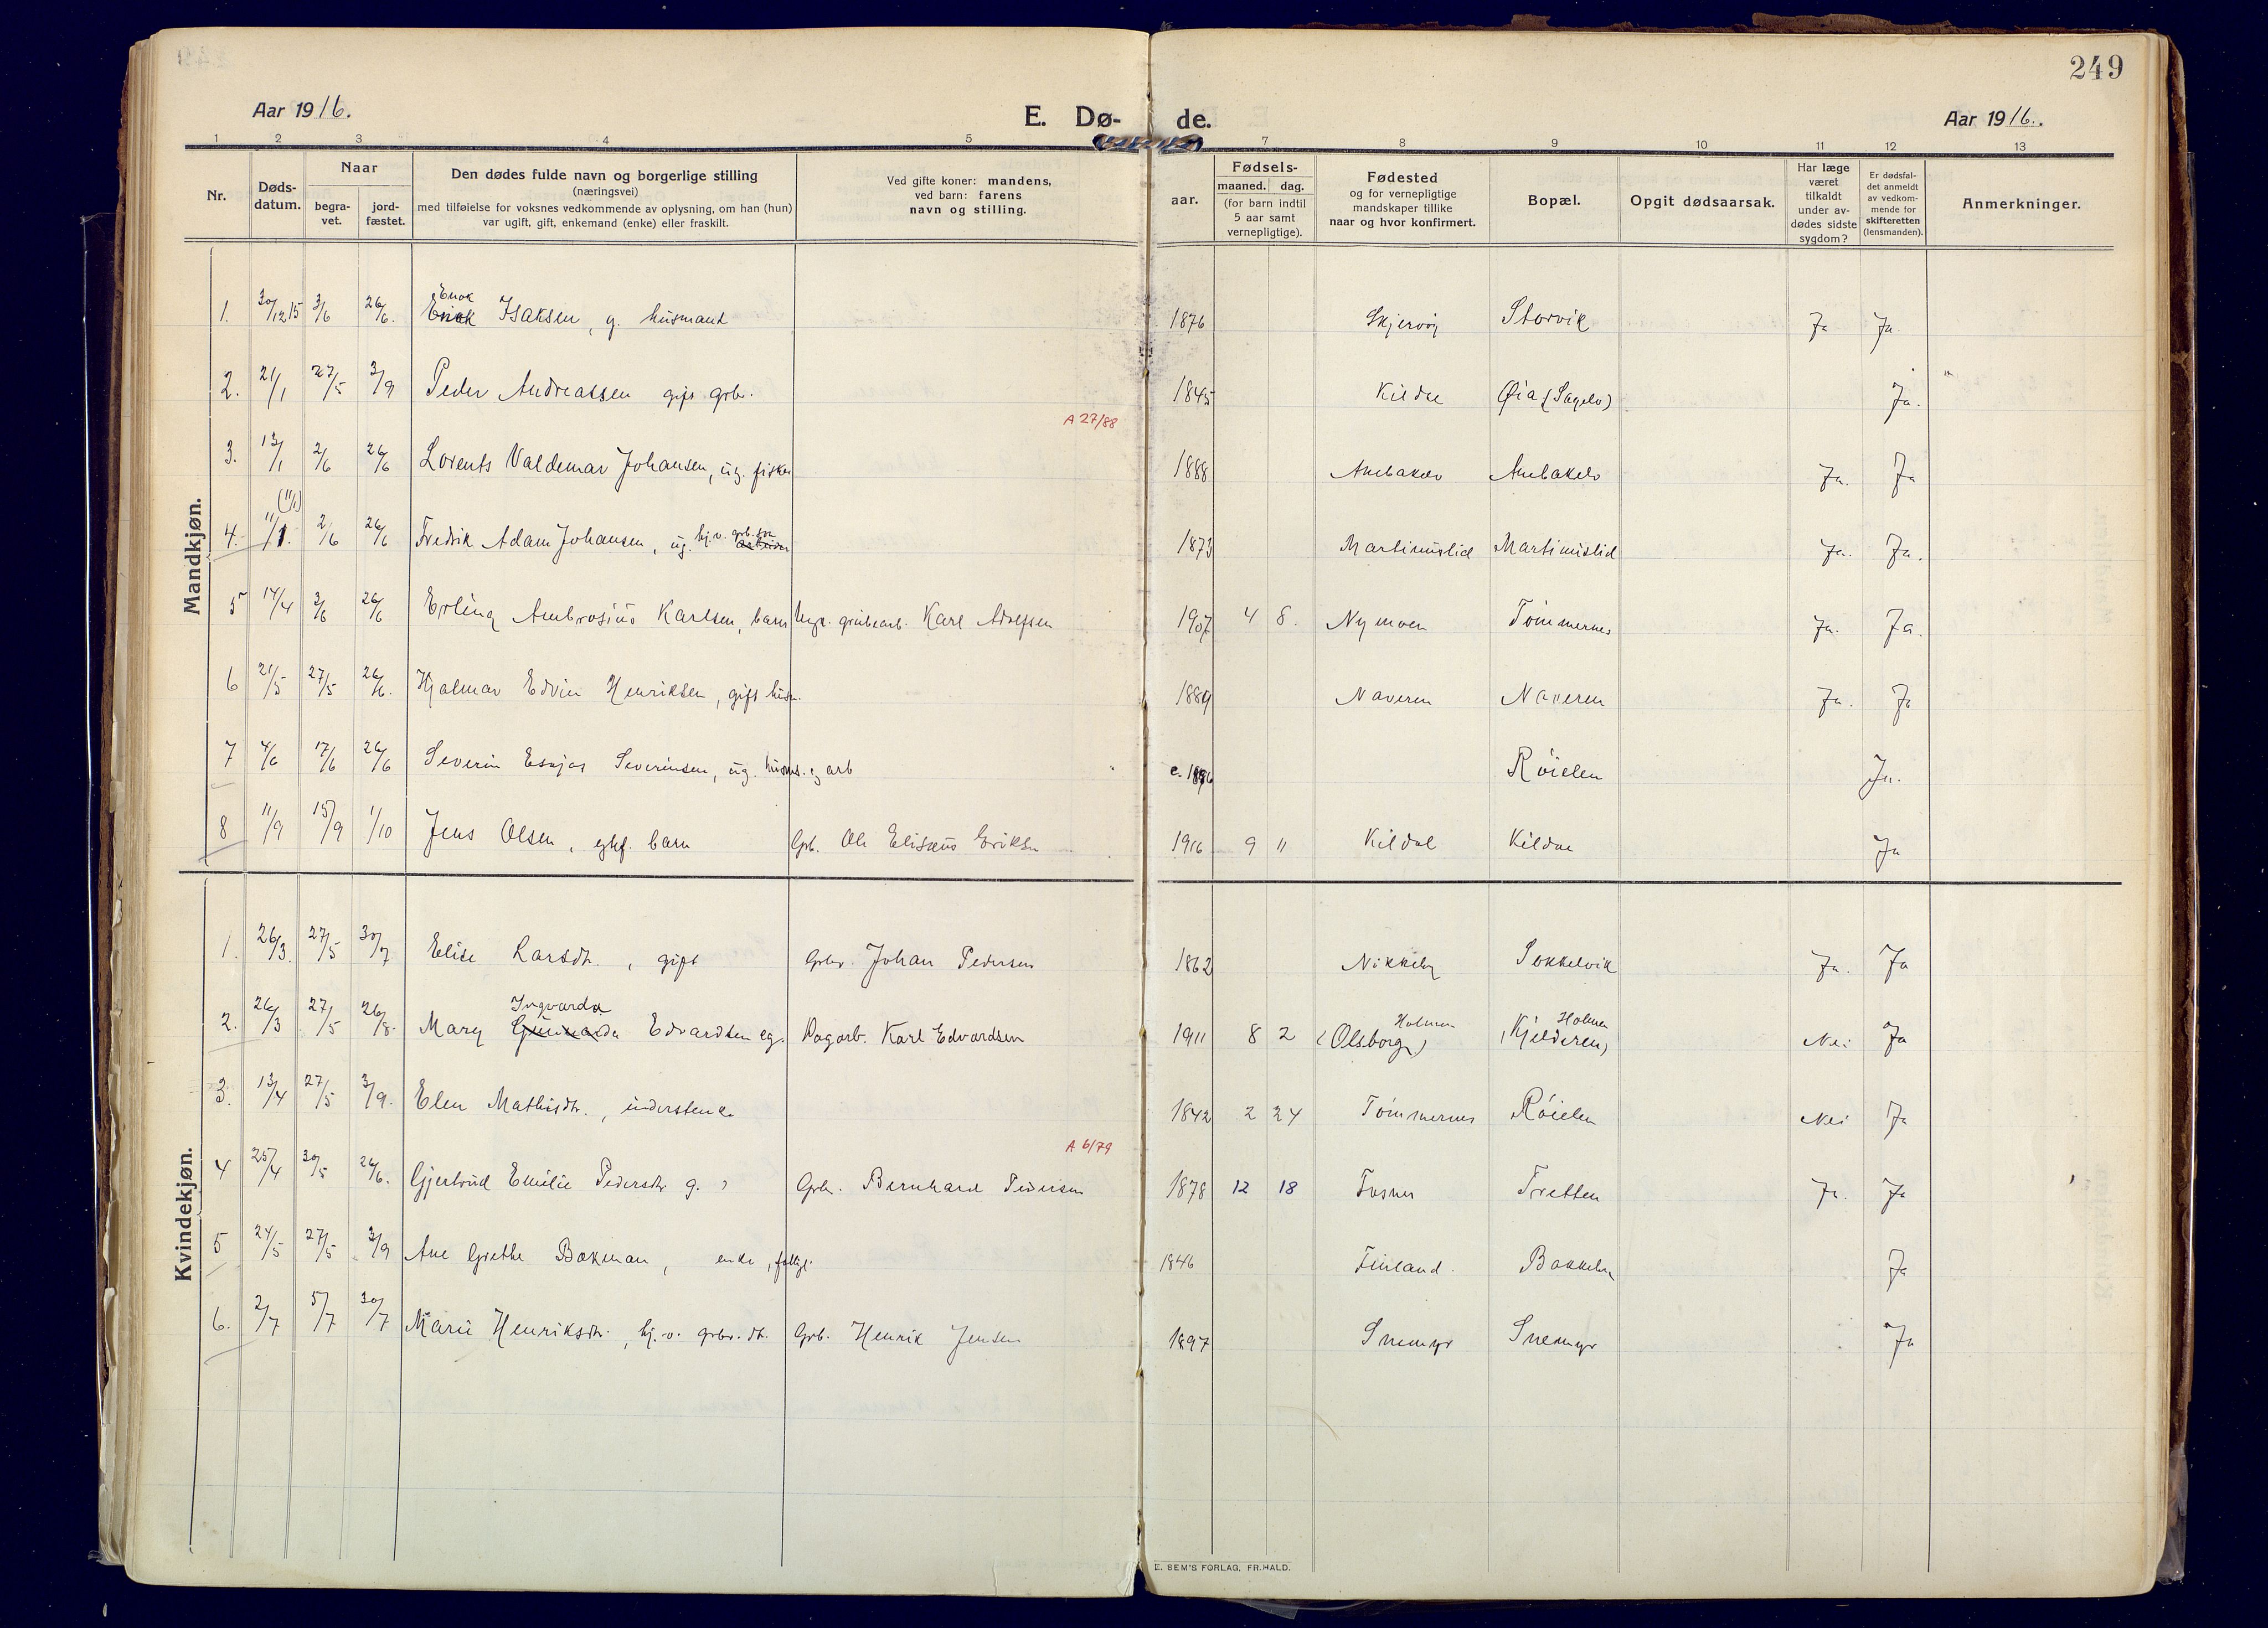 249
Aar 1916.
E. Dø-
de.
Aar 1916.
1 2 3 4 5 7 8 9 10 11 12 13
Nr.
Døds-
datum.
Naar
begra-
vet.
jord-
fæstet.
Den dødes fulde navn og borgerlige stilling
(næringsvei)
med tilføielse for voksnes vedkommende av oplysning, om han (hun)
var ugift, gift, enkemand (enke) eller fraskilt.
Ved gifte koner: mandens,
ved barn: farens
navn og stilling.
aar.
Fødsels-
maaned. dag.
(for barn indtil
5 aar samt
vernepligtige).
Fødested
og for vernepligtige
mandskaper tillike
naar og hvor konfirmert.
Bopæl.
Opgit dødsaarsak.
Har læge
været
tilkaldt
under av-
dødes sidste
sygdom?
Er dødsfal-
det anmeldt
av vedkom-
mende for
skifteretten
(lensmanden).
Anmerkninger.
Mandkjøn.
Enok
1. 30/12 15 3/6 26/6. Isaksen, g. husmand 1876 Skjervøy Storvik Ja Ja.
2. 21/1 27/5 3/9 Peder Andreassen gift grbr. 1845 Kildal Øia (Sagelv) Ja.
A 27/88
3. 13/1 2/6 26/6 Lorents Valdemar Johansen, ug. fisker 1888 Ja. Ja
(11/1)
4. 11/1. 2/6 26/6 Fredrik Adam Johansen, ug. hj.v. grb. søn 1873 Martinuslid Martinuslid Ja. Ja.
5 14/4 3/6 26/6 Erling Ambrosius Karlsen, barn grubearb. Karl Adolfsen 1907 4 8. Nymoen Tømmernes Ja. Ja.
6 21/5 27/5 26/6. Hjalmar Edvin Henriksen, gift husm. 1889 Naveren Naveren Ja. Ja
7 4/6 17/6 26/6 Severin Esajas Severinsen, ug. husms. og arb c. 1896 Røielen Ja.
8 11/9 15/9 1/10 Jens Olsen, egtef. barn Grb. Ole Elisæus Eriksen 1916 9 11 Kildal Kildal Ja
Kvindekjøn.
1. 26/3. 27/5 30/7 Elise Larsdtr., gift Grbr. Johan Pedersen 1862 Nikkeby Sokkelvik Ja. Ja
Ingvarda Holmen Holmen
2. 26/3 27/5 26/8. Mary Edvardsen eg. Dagarb. Karl Edvardsen 1911 8 2 (Olsborg) (Kjelderen) Nei Ja
3. 13/4 27/5 3/9. Elen Mathisdtr., inderstenke 1842 2 24 Tømmernes Røielen Nei Ja
A 6/79
4 25/4 30/5 26/6. Gjertrud Emilie Pedersdtr g. Grbr. Bernhard Pedersen 1878 12 18 Fosnes Tretten Ja. Ja
5 24/5 27/5 3/9 Ane Grethe Bakman, enke, fattigl. 1846 Finland. Bakkeby Ja
6. 2/7 5/7 30/7 Marie Henriksdtr., hj.v. grbr. dt. Grb. Henrik Jensen 1897 Snemyr Snemyr Ja
E. SEM'S FORLAG, FR.HALD.